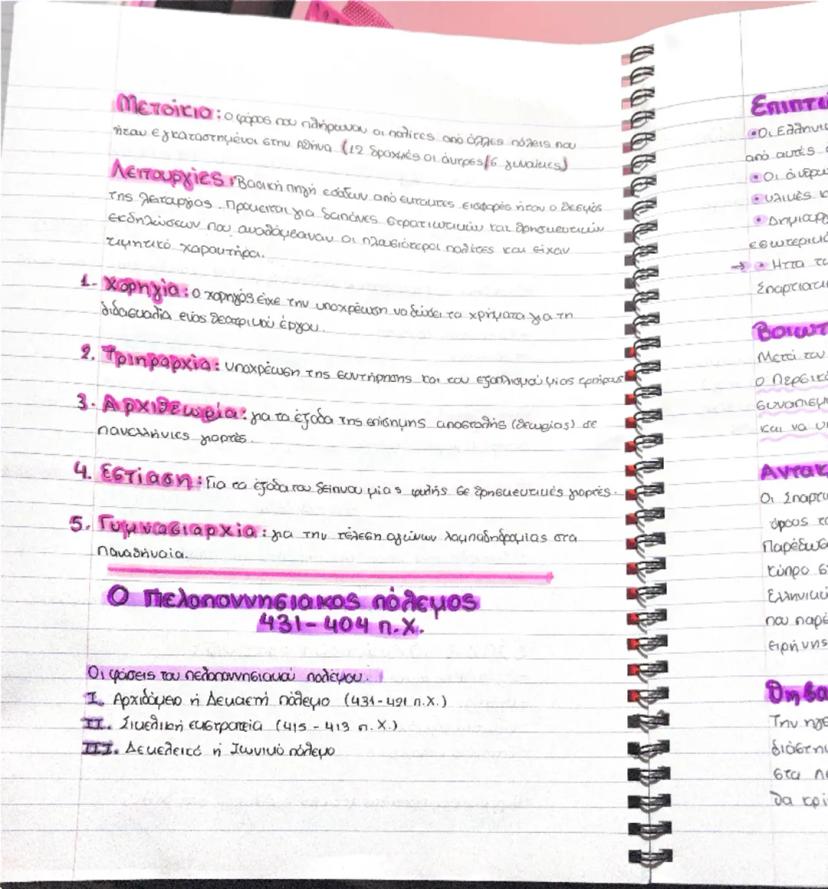 Μετοίκιο: ο φόρος που πλήρωναν οι πολίτες από άλλες πόλεις που
ήταν εγκαταστημένοι στην Αθήνα (12 δραχμές οι άντρες/6 γυναίκες)
Λειτουργίες: Βασική πηγή εσόδων από έκτακτες εισφορές ήταν ο θεσμός
της λειτουργίας. Πρόκειται για δαπάνες στρατιωτικών και θρησκευτικών
εκδηλώσεων που αναλάμβαναν οι πλουσιότεροι πολίτες και είχαν
τιμητικό χαρακτήρα.
1. Χορηγία: ο χορηγός είχε την υποχρέωση να δώσει τα χρήματα για τη
διδασκαλία ενός θεατρικού έργου.
2. Τριηραρχία: υποχρέωση της συντήρησης και του εξοπλισμού μίας τριήρους
3. Αρχιθεωρία: για τα έξοδα της επίσημης αποστολής (θεωρίας) σε
πανελλήνιες γιορτές.
4. Εστίαση: Για τα έξοδα του δείπνου μίας φυλής σε θρησκευτικές γιορτές.
5. Γυμνασιαρχία: για την τέλεση αγώνων λαμπαδηδρομίας στα
Παναθήναια.
Ο Πελοποννησιακος πόλεμος
431-404 π.Χ.
Οι φάσεις του πελοποννησιακού πολέμου.
I. Αρχιδάμειο ή Δεκαετή πόλεμο (431-421 π.Χ.)
II. Σικελική εκστρατεία (415-413 π.Χ.)
III. Δεκελεικό ή Ιωνικό πόλεμο
• Οι Ελλην
από αυτές
• Οι άνθρω
• υλικές κ
• Δημιουργ
εσωτερικ
→ • Ήττα τ
Σπαρτιατι
Βοιωτ
Μετά τον
ο Περσικό
και να υ
Ανταλ
Οι Σπαρτι
όρους τ
Παρέδωσ
Κύπρο σ
Ελληνικ
που παρέ
ειρήνης
Θηβα
Την ηγε
στα π
θα κρί